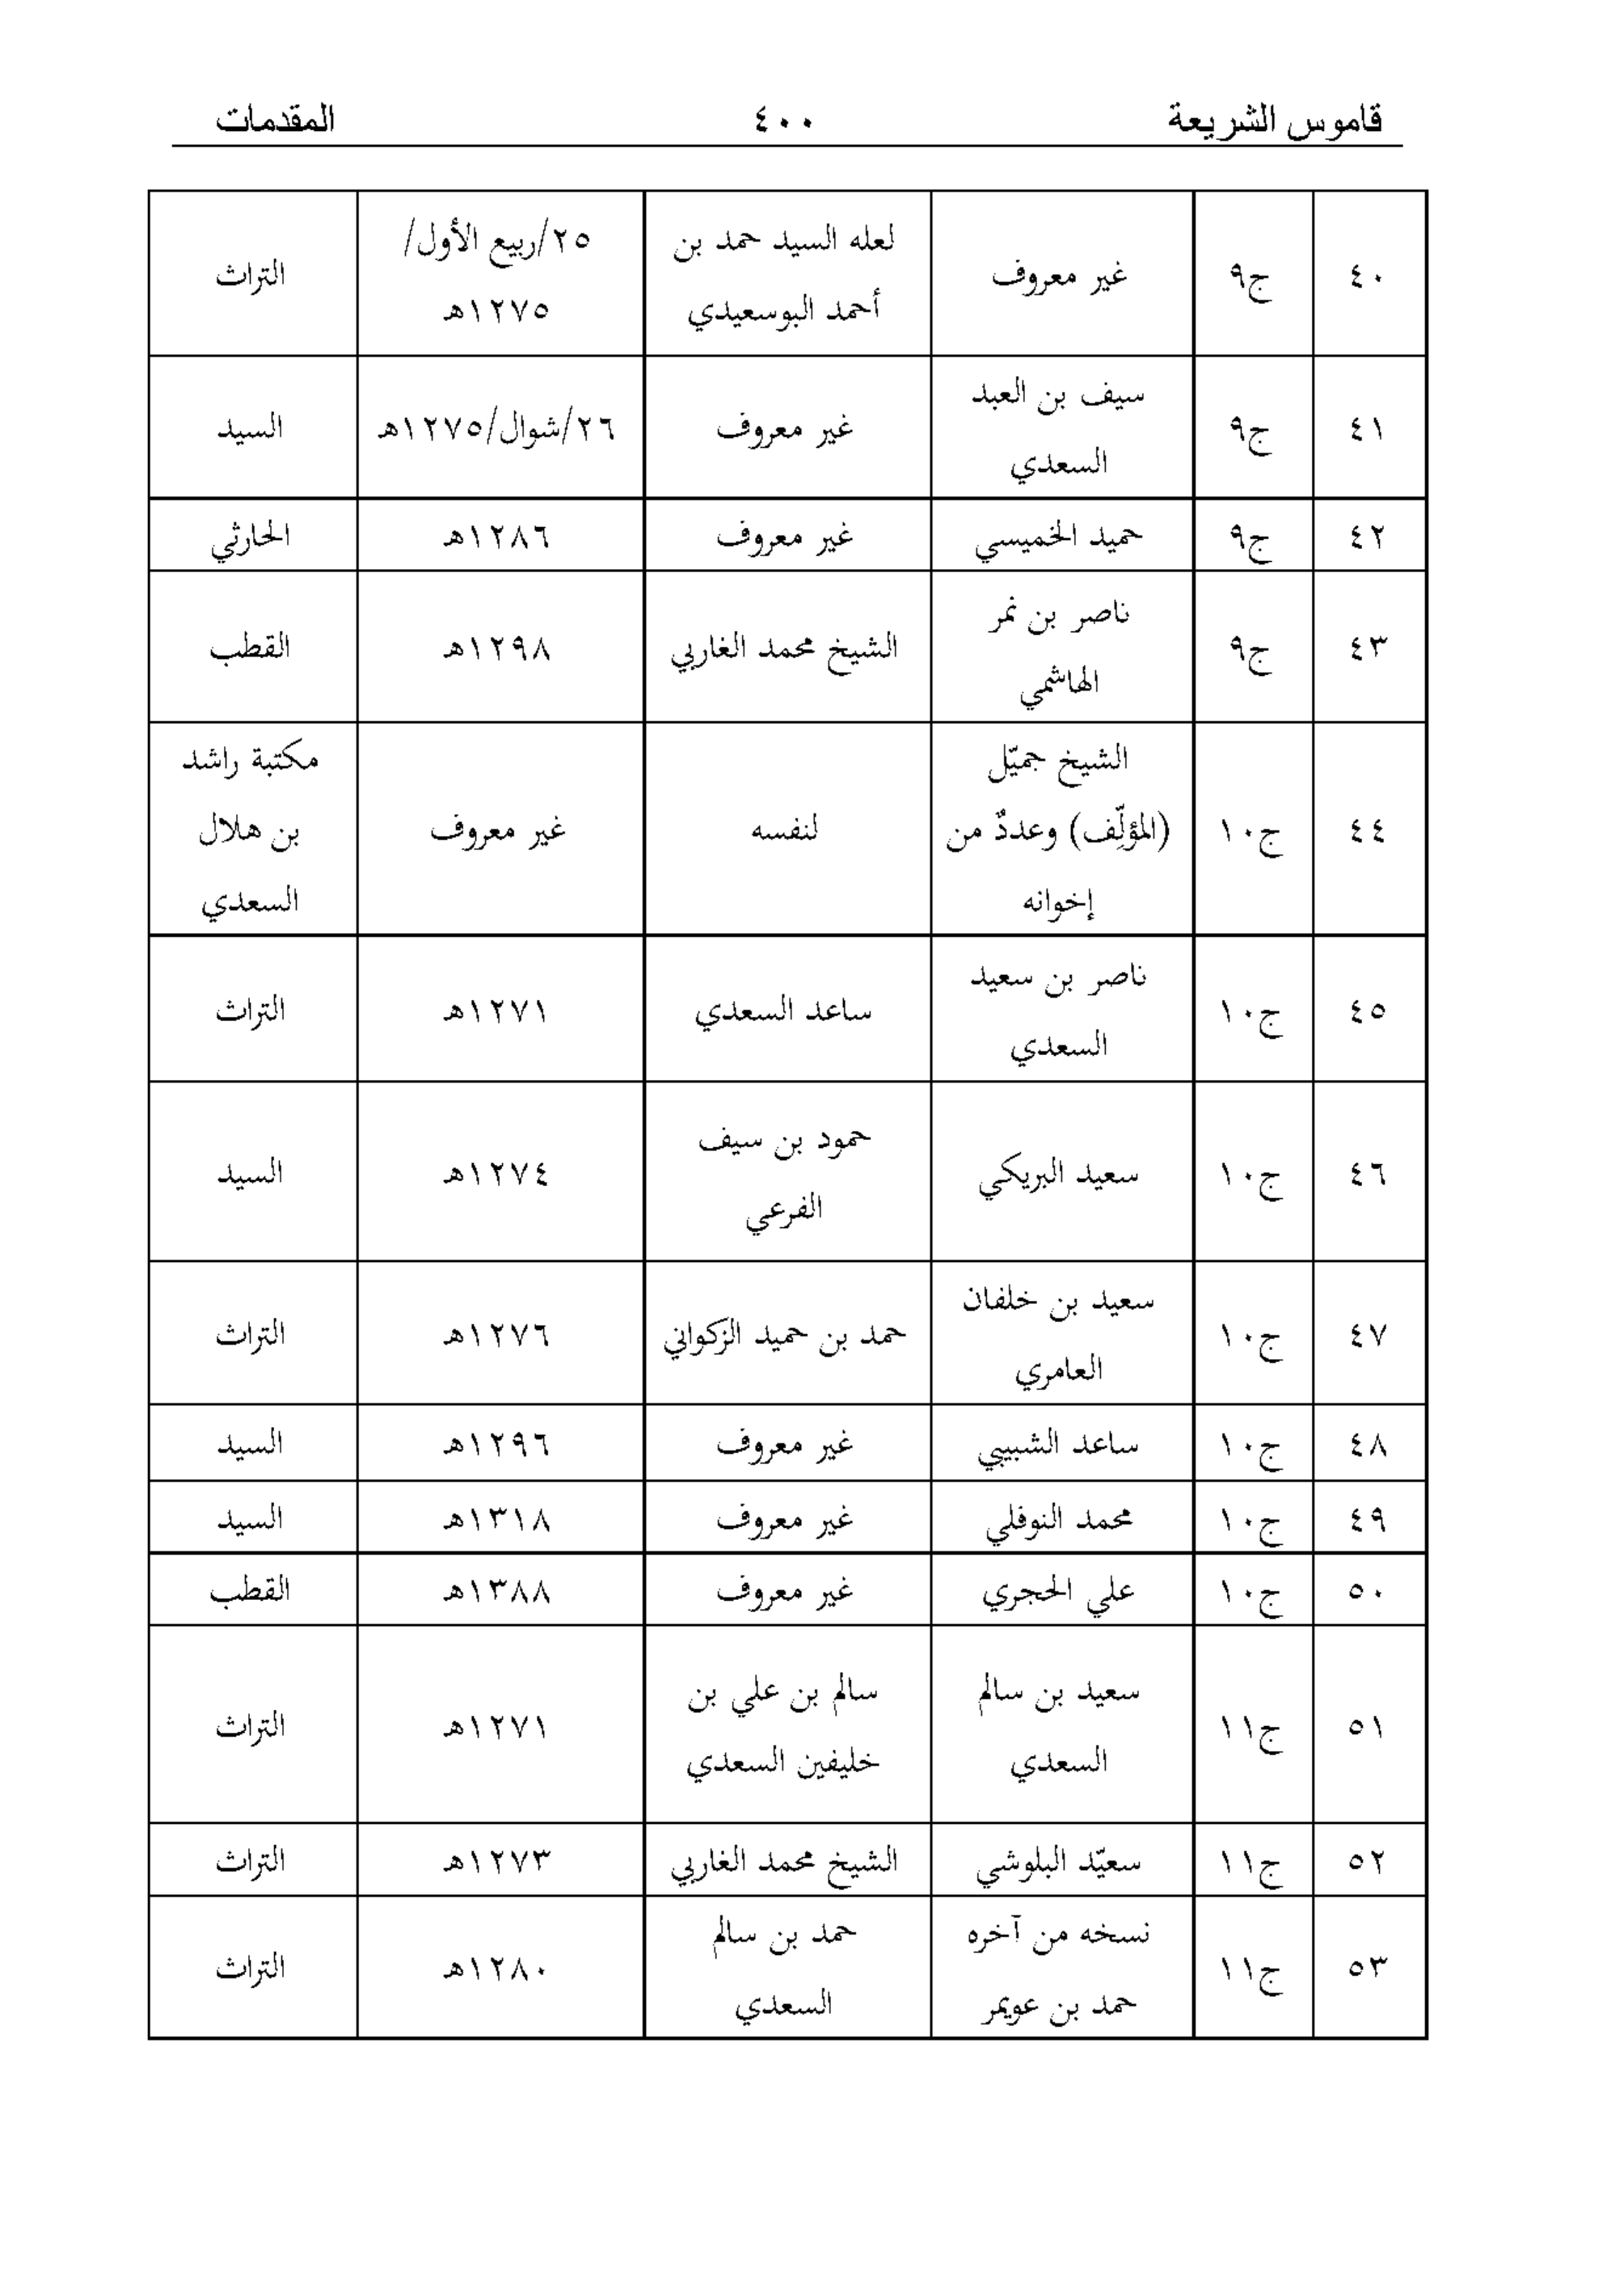 قاموس الشريعة ٤٠٠ المقدمات
٤٠ ج٩ غير معروف لعله السيد حمد بن أحمد البوسعيدي ٢٥/ربيع الأول/١٢٧٥هـ التراث
٤١ ج٩ سيف بن العبد السعدي غير معروف ٢٦/شوال/١٢٧٥هـ السيد
٤٢ ج٩ حميد الخميسي غير معروف ١٢٨٦هـ الحارثي
٤٣ ج٩ ناصر بن نمر الهاشمي الشيخ محمد الغاربي ١٢٩٨هـ القطب
٤٤ ج١٠ الشيخ جميّل (المؤلِّف) وعددٌ من إخوانه لنفسه غير معروف مكتبة راشد بن هلال السعدي
٤٥ ج١٠ ناصر بن سعيد السعدي ساعد السعدي ١٢٧١هـ التراث
٤٦ ج١٠ سعيد البريكي حمود بن سيف الفرعي ١٢٧٤هـ السيد
٤٧ ج١٠ سعيد بن خلفان العامري حمد بن حميد الزكواني ١٢٧٦هـ التراث
٤٨ ج١٠ ساعد الشبيبي غير معروف ١٢٩٦هـ السيد
٤٩ ج١٠ محمد النوفلي غير معروف ١٣١٨هـ السيد
٥٠ ج١٠ علي الحجري غير معروف ١٣٨٨هـ القطب
٥١ ج١١ سعيد بن سالم السعدي سالم بن علي بن خليفين السعدي ١٢٧١هـ التراث
٥٢ ج١١ سعيّد البلوشي الشيخ محمد الغاربي ١٢٧٣هـ التراث
٥٣ ج١١ نسخه من آخره حمد بن عويمر حمد بن سالم السعدي ١٢٨٠هـ التراث